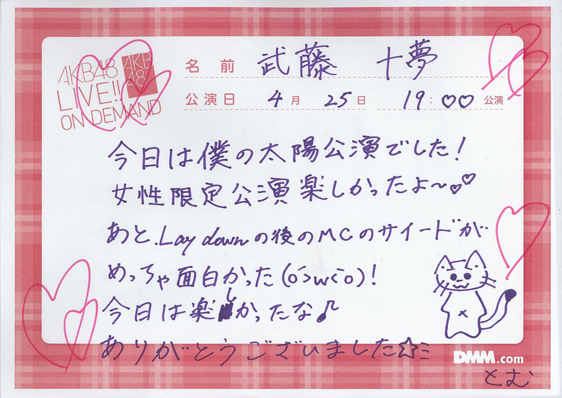 AKB48
LIVE!!
ON DEMAND
AKB
48
名前 武藤 十夢
公演日 4月 25日 19:♡♡公演
今日は僕の太陽公演でした!
女性限定公演楽しかったよ〜♡♡
あと、Lay downの後のMCのサイードが
めっちゃ面白かった(o´>w<`o)!
今日は楽しかったな♪
ありがとうございました☆ミ
DMM.com
とむ